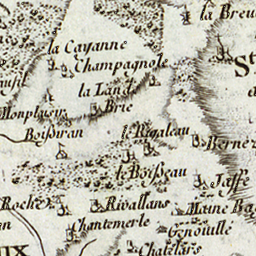 la Breu
la Cayanne
Champagnole
St
la Land
Brie
Monplaisir
Boisivran
le Rigaleau
Bernez
le Boisseau
Jaffe
Roche
Rivallans
Maine Ba
Chantemerle
Genouillé
Chatelars